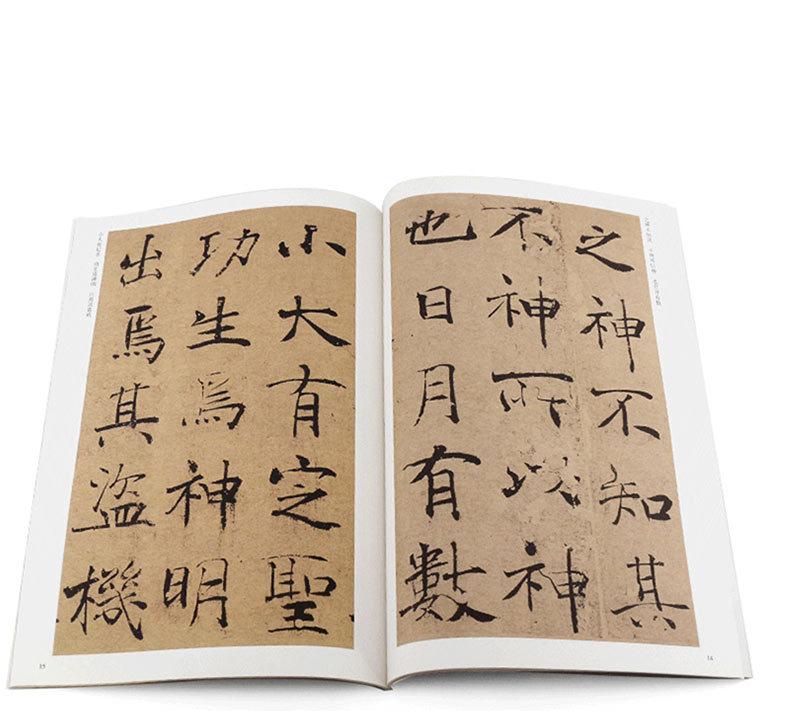 之神不知其
不神所以神
也日月有數
小大有定聖
功生焉神明
出焉其盜機
14
15